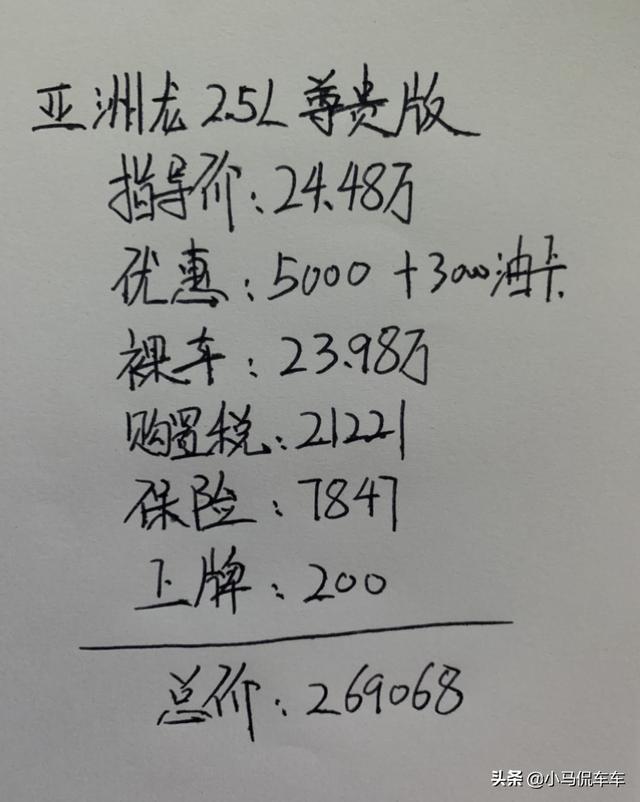 亚洲龙 2.5L 尊贵版
指导价:24.48万
优惠:5000 + 3000油卡
裸车:23.98万
购置税:21221
保险:7847
上牌:200
总价:269068
头条 @小马侃车车